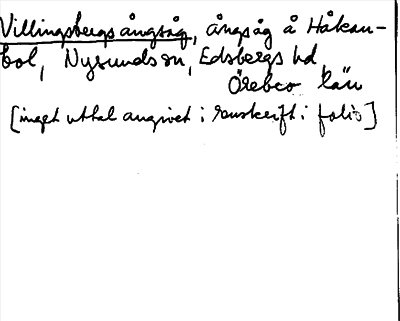 Villingsbergs ångsåg, ångsåg å Håkan-
bol, Nysunds sn, Edsbergs hd,
Örebro län
[inget uttal angivet i renskrift i folio]